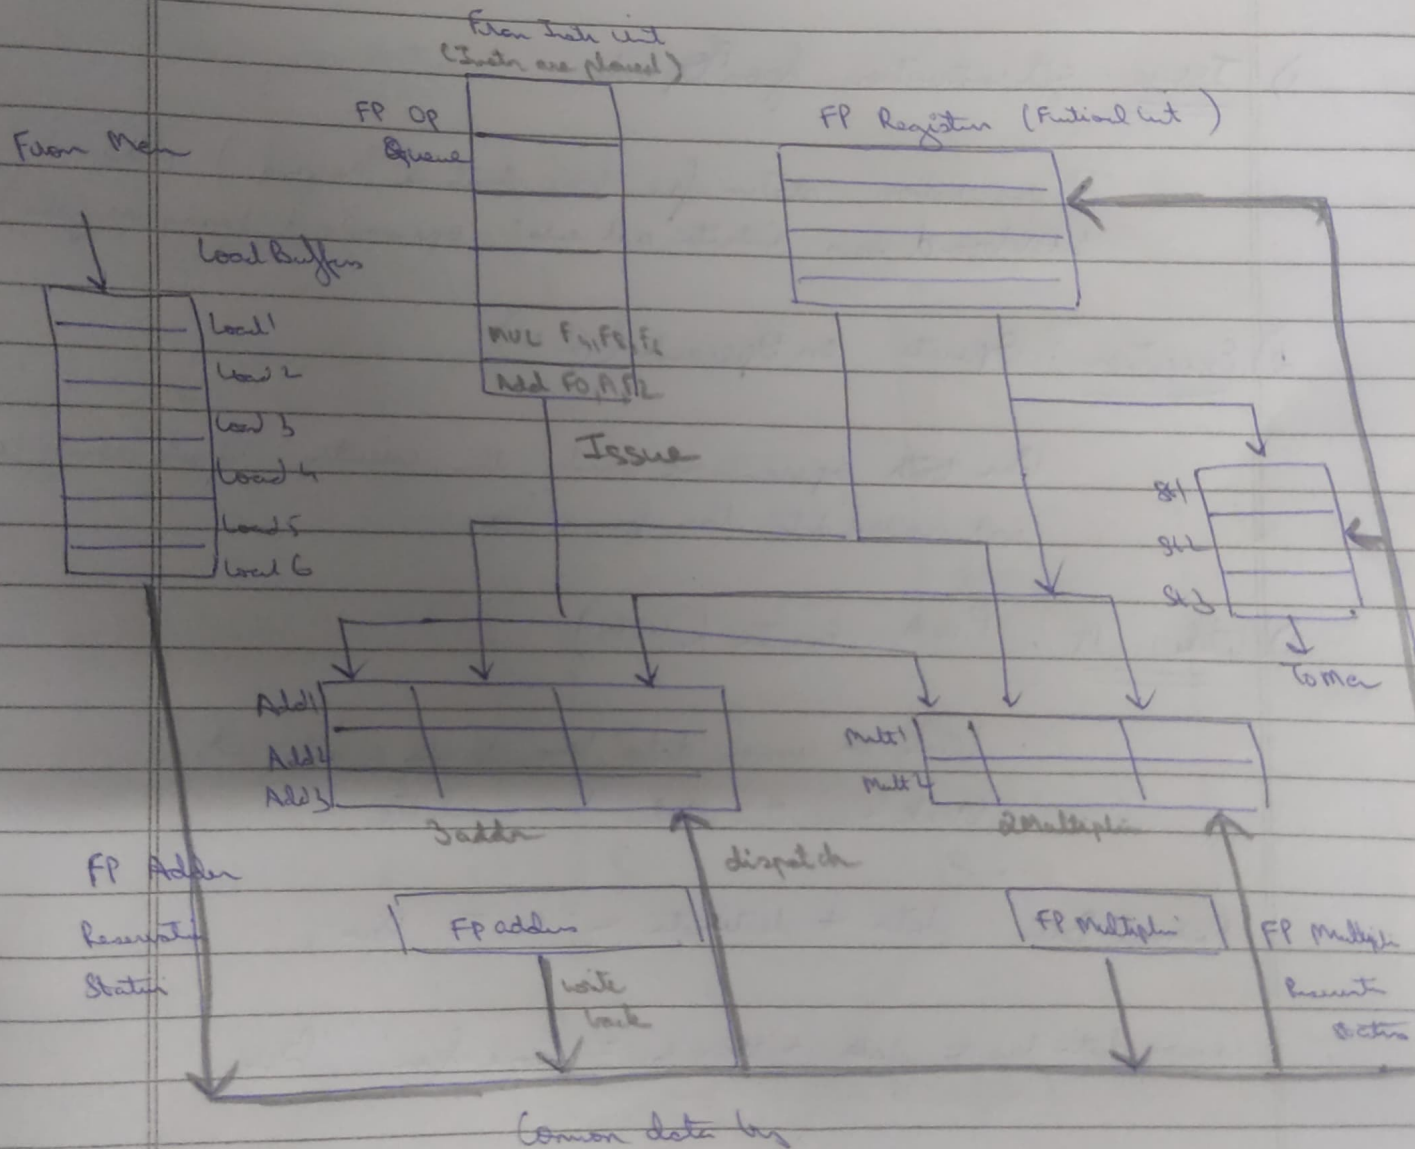 From Instr Unit
(Instr are placed)
FP Op
Queue
FP Registers (Functional Unit)
From Mem
Load Buffers
Load 1
Load 2
Load 3
Load 4
Load 5
Load 6
MUL F4, F8, F6
Add F0, F1, F2
Issue
St1
St2
St3
To Mem
Add1
Add2
Add3
3 adder
Mult1
Mult2
2 Multiplier
dispatch
FP Adder
Reservation
Station
FP adders
FP Multiplier
FP Multipli
Reservatn
Station
write
back
Common data bus